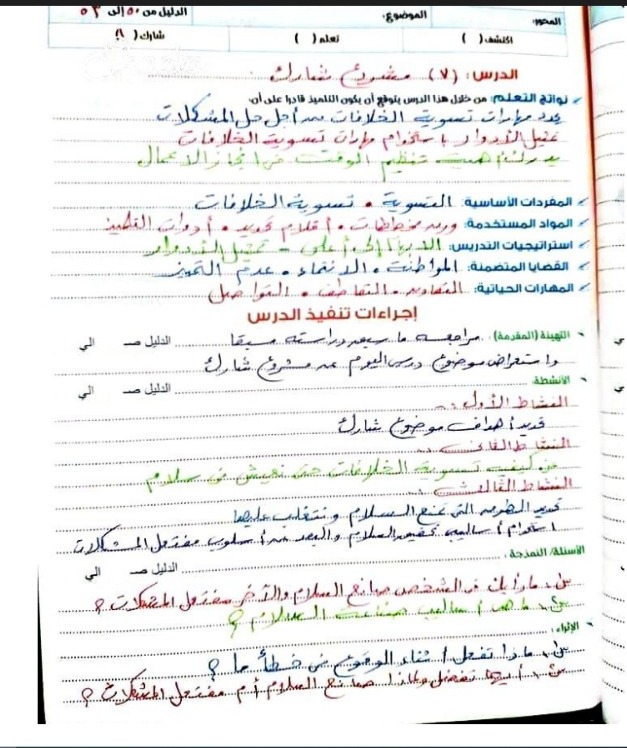 المحور: الموضوع: الدليل من ٥٠ إلى ٥٣
اكتشف ( ) تعلم ( ) شارك ( )
الدرس : (٧) مشروع شارك
نواتج التعلم: من خلال هذا الدرس يتوقع أن يكون التلميذ قادرا على أن:
يحدد مهارات تسوية الخلافات من أجل حل المشكلات
تمثيل الأدوار باستخدام مهارات تسوية الخلافات
يدرك أهمية تنظيم الوقت في إنجاز الأعمال
المفردات الأساسية: التسوية • تسوية الخلافات
المواد المستخدمة: ورق مخططات • أقلام تحديد • أدوات التلميذ
استراتيجيات التدريس: الأيدي إلى أعلى - تمثيل الأدوار
القضايا المتضمنة: المواطنة • الانتماء • عدم التميز
المهارات الحياتية: التعاون • التعاطف • التواصل
إجراءات تنفيذ الدرس
التهيئة (المقدمة): مراجعة ما سبق دراسته مسبقا الدليل صـ الي
واستعراض موضوع درس اليوم عن مشروع شارك
الأنشطة: الدليل صـ الي
النشاط الأول :
تحديد أهداف موضوع شارك
النشاط الثاني :
عن كيفية تسوية الخلافات حتى نعيش في سلام
النشاط الثالث :
تحديد الطرق التي تمنع السلام ونتغلب عليها
استخدام أساليب تحقيق السلام والبعد عن أسلوب مفتعل المشكلات
الأسئلة/ النمذجة : الدليل صـ الي
س١ ما رأيك في الشخص صانع السلام والآخر مفتعل المشكلات ؟
س٢ ما هي أساليب صناعة السلام ؟
الإثراء :
س١ ماذا تفعل أثناء الوقوع في خطأ ما ؟
س٢ أيهما تفضل ولماذا صانع السلام أم مفتعل المشكلات ؟